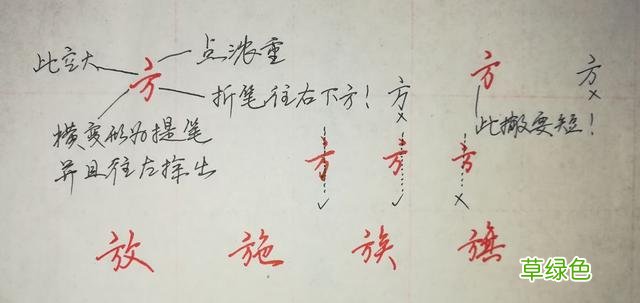 此空大
方
点浓重
折笔往右下方！
横变形为提笔
并且往左探出
方
×
方
此撇要短！
方
×
方
✓
方
✓
方
×
放 施 族 旗
草绿色